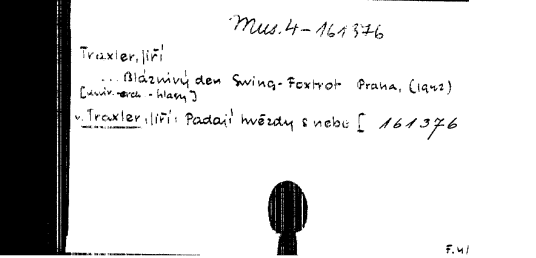 Mus. 4 - 161376
Traxler, Jiří
... Bláznivý den Swing-Foxtrot Praha, (1942)
[univ. orch - hlasy]
v. Traxler, Jiří: Padají hvězdy s nebe [ 161376
F. 41